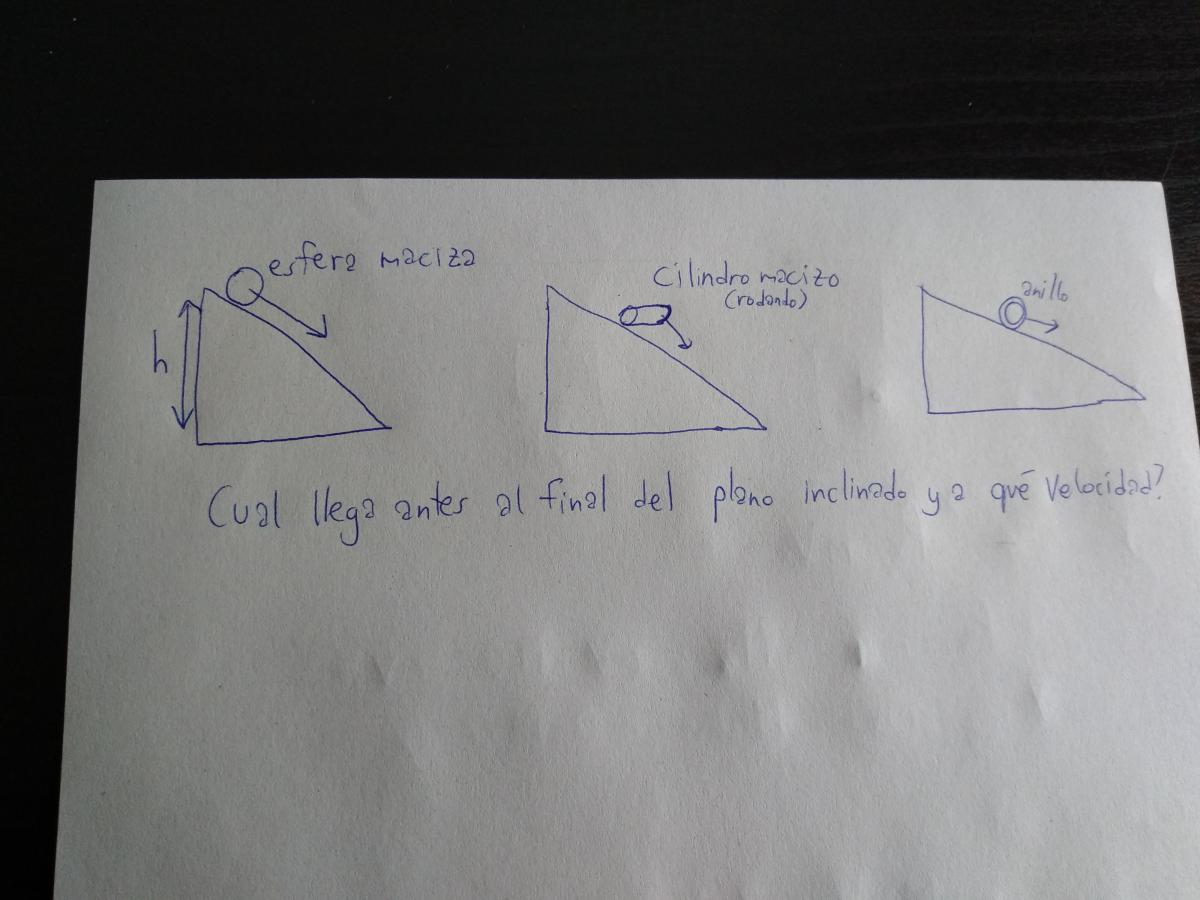 esfera maciza
h
Cilindro macizo
(rodando)
anillo
Cual llega antes al final del plano inclinado y a qué velocidad?